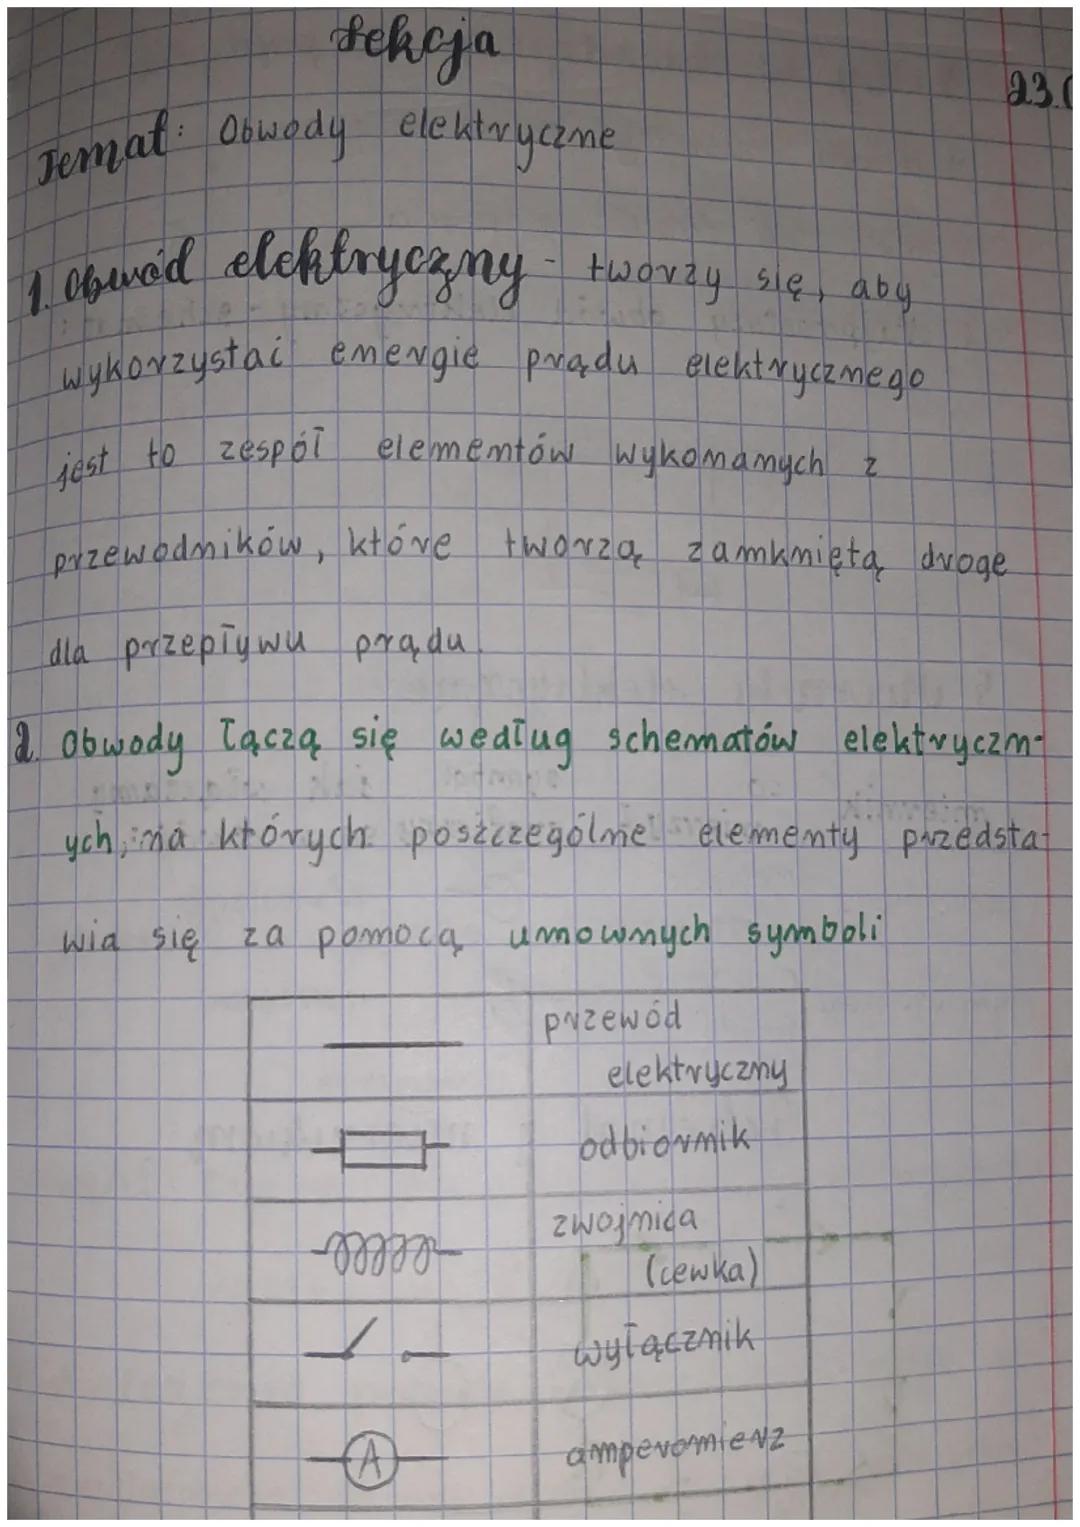 Lekcja
23.0
Temat: Obwody elektryczne
1. Obwód elektryczny - tworzy się, aby
wykorzystać energie prądu elektrycznego
jest to zespół elementów wykonanych z
przewodników, które tworzą zamkniętą droge
dla przepływu prądu.
2. Obwody łączą się według schematów elektryczn-
ych, na których poszczególne elementy przedsta-
wia się za pomocą umownych symboli
przewód
elektryczny
odbiornik
zwojnica
(cewka)
wyłącznik
A
amperomierz